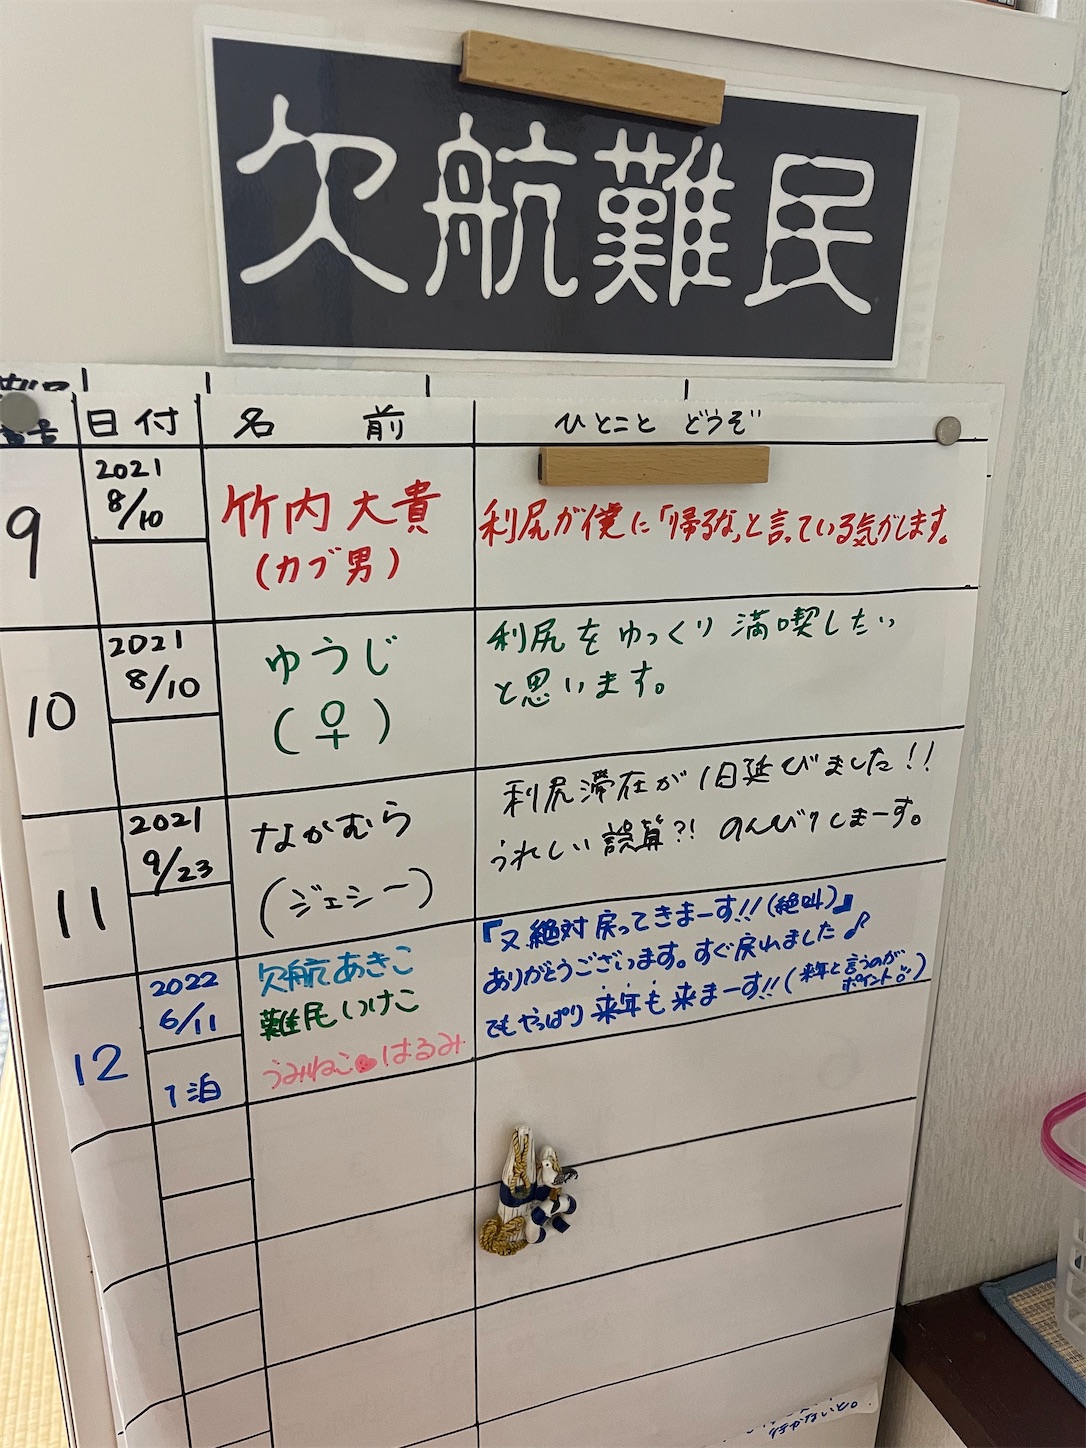 欠航難民
日付 名前 ひとこと どうぞ
9
2021
8/10
竹内大貴
(カブ男)
利尻が僕に「帰るな」と言っている気がします。
10
2021
8/10
ゆうじ
(♀)
利尻をゆっくり満喫したい
と思います。
11
2021
9/23
なかむら
(ジェシー)
利尻滞在が1日延びました!!
うれしい誤算?! のんびりしまーす。
12
2022
6/11
1泊
欠航あきこ
難民いけこ
うみねこ♥はるみ
『又絶対戻ってきまーす!!(絶叫)』
ありがとうございます。すぐ戻れました♪
でもやっぱり来年も来まーす!!(来年と言うのが
ポイント)
行かないと。